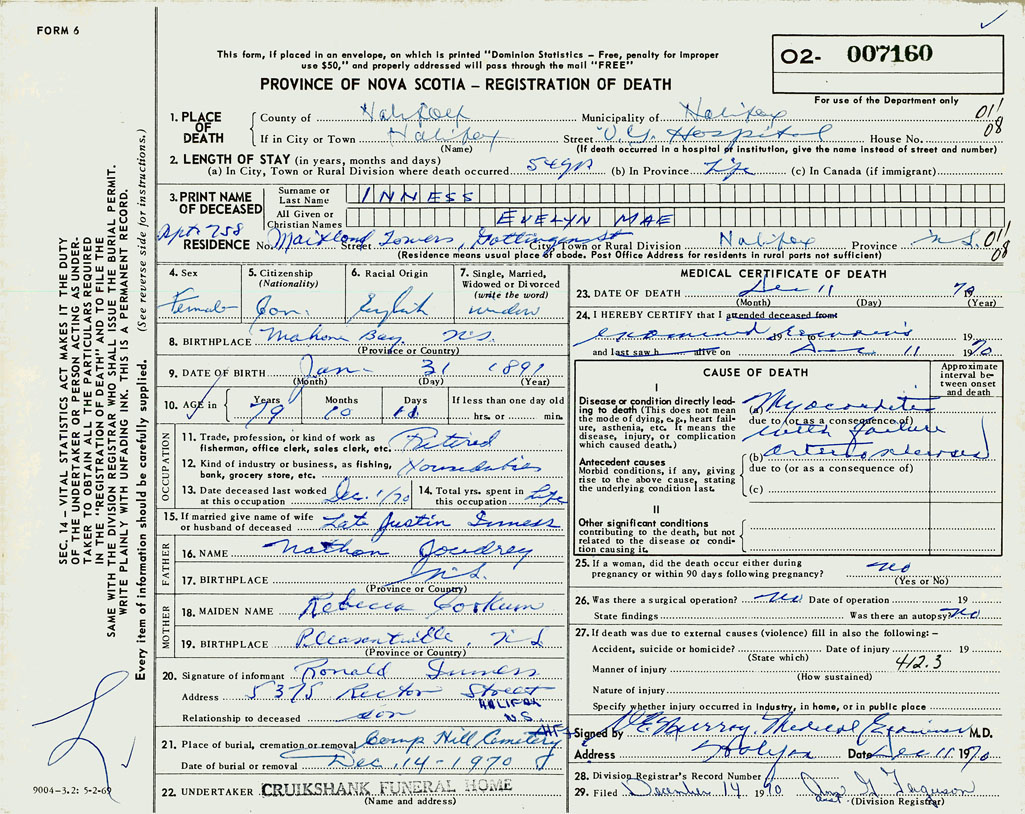 FORM 6
This form, if placed in an envelope, on which is printed "Dominion Statistics – Free, penalty for improper
use $50," and properly addressed will pass through the mail "FREE"
PROVINCE OF NOVA SCOTIA – REGISTRATION OF DEATH
02- 007160
For use of the Department only
1. PLACE OF DEATH
County of Halifax Municipality of Halifax 01/
If in City or Town Halifax Street V.G. Hospital House No. 08
(Name) (If death occurred in a hospital of institution, give the name instead of street and number)
2. LENGTH OF STAY (in years, months and days)
(a) In City, Town or Rural Division where death occurred 54 yrs (b) In Province Life (c) In Canada (if immigrant)
3. PRINT NAME OF DECEASED
Surname or Last Name INNESS
All Given or Christian Names EVELYN MAE
Apt. 758
RESIDENCE No. Maitland Street Towers, Gottingen St City, Town or Rural Division Halifax Province N.S. 01/
(Residence means usual place of abode. Post Office Address for residents in rural parts not sufficient) 08
4. Sex
Female
5. Citizenship (Nationality)
Can.
6. Racial Origin
English
7. Single, Married, Widowed or Divorced (write the word)
widow
8. BIRTHPLACE Mahone Bay N.S.
(Province or Country)
9. DATE OF BIRTH Jan. 31 1891
(Month) (Day) (Year)
10. AGE in Years 79 Months 10 Days 11 If less than one day old
hrs. or min.
OCCUPATION
11. Trade, profession, or kind of work as
fisherman, office clerk, sales clerk, etc. Retired
12. Kind of industry or business, as fishing,
bank, grocery store, etc. Houseduties
13. Date deceased last worked
at this occupation Dec. 1/70
14. Total yrs. spent in
this occupation Life
15. If married give name of wife
or husband of deceased Late Justin Inness
FATHER
16. NAME Nathan Joudrey
17. BIRTHPLACE N.S.
(Province or Country)
MOTHER
18. MAIDEN NAME Rebecca Corkum
19. BIRTHPLACE Pleasantville, N S
(Province or Country)
20. Signature of informant Ronald Inness
Address 5375 Rector Street
HALIFAX
N.S.
Relationship to deceased son
21. Place of burial, cremation or removal Camp Hill Cemetery HFX
Date of burial or removal Dec. 14 - 1970
22. UNDERTAKER CRUIKSHANK FUNERAL HOME
(Name and address)
MEDICAL CERTIFICATE OF DEATH
23. DATE OF DEATH Dec 11 1970
(Month) (Day) (Year)
24. I HEREBY CERTIFY that I attended deceased from
examined remains 19
and last saw h alive on Dec 11 1970
CAUSE OF DEATH
Approximate interval between onset and death
I
Disease or condition directly leading to death (This does not mean
the mode of dying, e.g., heart failure, asthenia, etc. It means the
disease, injury, or complication
which caused death.)
(a) Myocarditis
due to (or as a consequence of)
with failure
Antecedent causes
Morbid conditions, if any, giving
rise to the above cause, stating
the underlying condition last.
(b) arteriosclerosis
due to (or as a consequence of)
(c)
II
Other significant conditions
contributing to the death, but not
related to the disease or condition causing it.
25. If a woman, did the death occur either during
pregnancy or within 90 days following pregnancy? no
(Yes or No)
26. Was there a surgical operation? no Date of operation 19
State findings Was there an autopsy? no
27. If death was due to external causes (violence) fill in also the following: –
Accident, suicide or homicide? Date of injury 19
(State which)
Manner of injury 412.3
(How sustained)
Nature of injury
Specify whether injury occurred in Industry, in home, or in public place
Signed by Murray, Medical Examiner M.D.
Address Halifax Date Dec 11 1970
28. Division Registrar's Record Number
29. Filed December 14 1970 Ferguson
asst. (Division Registrar)
SEC. 14 – VITAL STATISTICS ACT MAKES IT THE DUTY
OF THE UNDERTAKER OR PERSON ACTING AS UNDER-
TAKER TO OBTAIN ALL THE PARTICULARS REQUIRED
IN THE "REGISTRATION OF DEATH" AND TO FILE THE
SAME WITH THE DIVISION REGISTRAR WHO SHALL ISSUE THE BURIAL PERMIT.
WRITE PLAINLY WITH UNFADING INK. THIS IS A PERMANENT RECORD.
Every item of information should be carefully supplied. (See reverse side for instructions.)
9004-3.2: 5-2-69